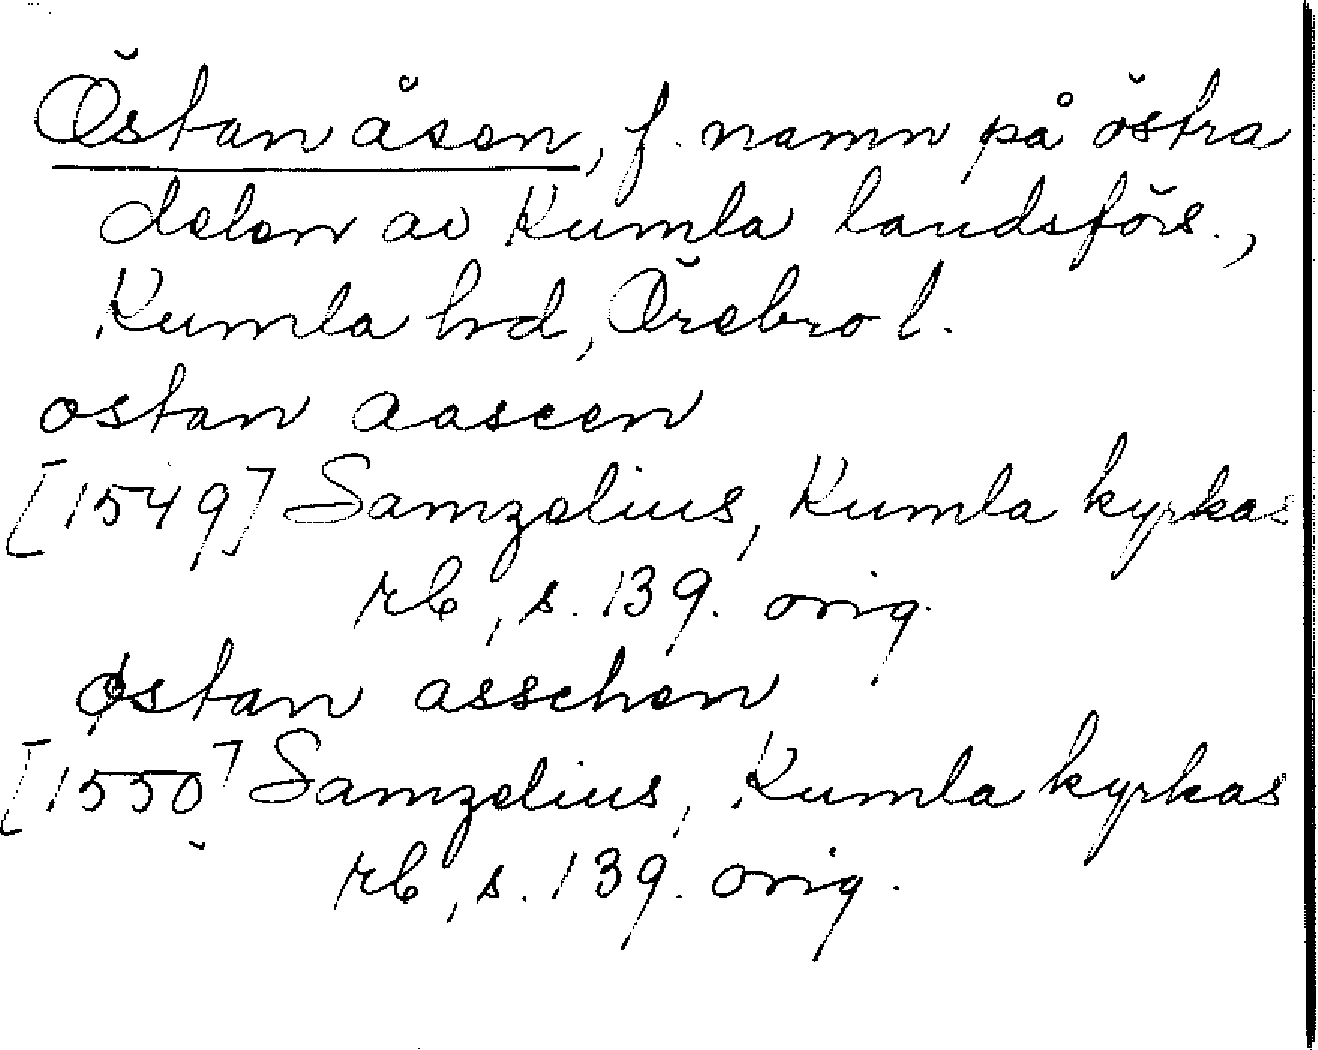 Östan åsen, f. namn på östra
delen av Kumla landsförs.,
Kumla hd, Örebro l.
ostan aaseen
[1549] Samzelius, Kumla kyrkas
rb, s. 139. orig.
østan asschen
[1550] Samzelius, Kumla kyrkas
rb, s. 139. orig.